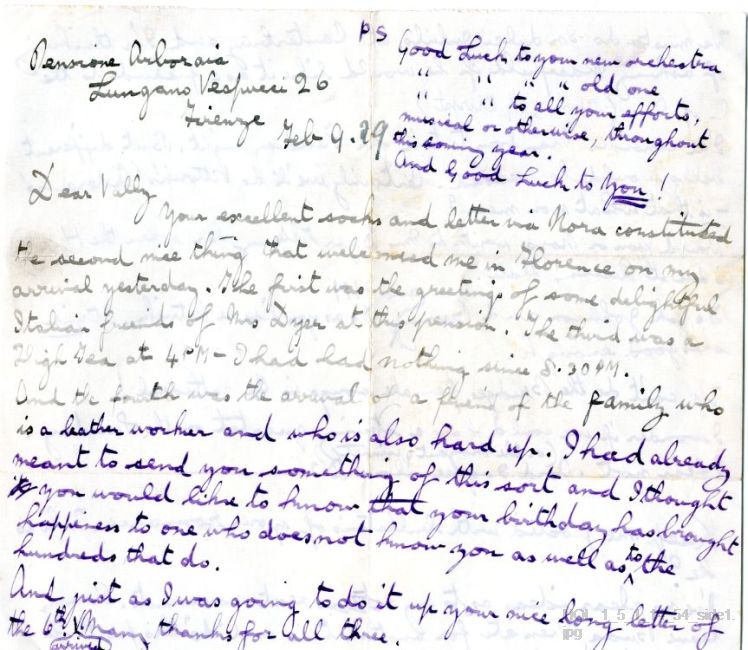 PS Good Luck to your new orchestra
" " " " old one
" " to all your efforts,
musical or otherwise, throughout
this coming year.
And Good Luck to You!
Pensione Arboraia
Lungano Vespucci 26
Firenze
Feb 9. 29
Dear Vally
Your excellent socks and letter via Nora constituted
the second nice thing that welcomed me in Florence on my
arrival yesterday. The first was the greetings of some delightful
Italian friends of Mrs Dyer at this pension. The third was a
High Tea at 4PM – I had had nothing since 8.30AM.
And the fourth was the arrival of a friend of the family who
is a leather worker and who is also hard up. I had already
meant to send you something of this sort and I thought
you would like to know that your birthday has brought
happiness to one who does not know you as well as to the
hundreds that do.
And just as I was going to do it up your nice long letter of
the 6th arrived. Many thanks for all three.
1.jpg